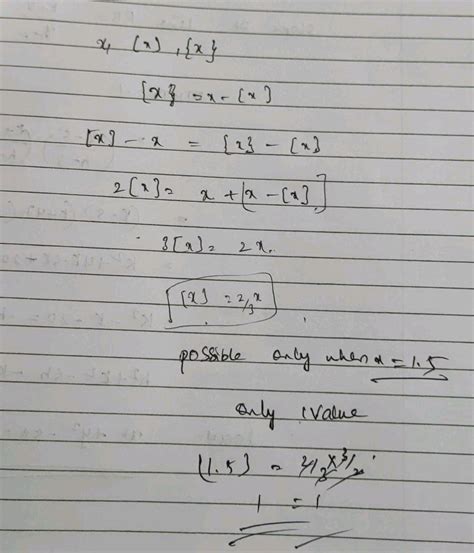 x, [x], {x}
{x} = x - [x]
[x] - x = {x} - [x]
2[x] = x + [x - [x]]
3[x] = 2x.
[x] = 2/3 x
possible only when x = 1.5
only 1 value
[1.5] = 2/3 x 3/2
1 = 1